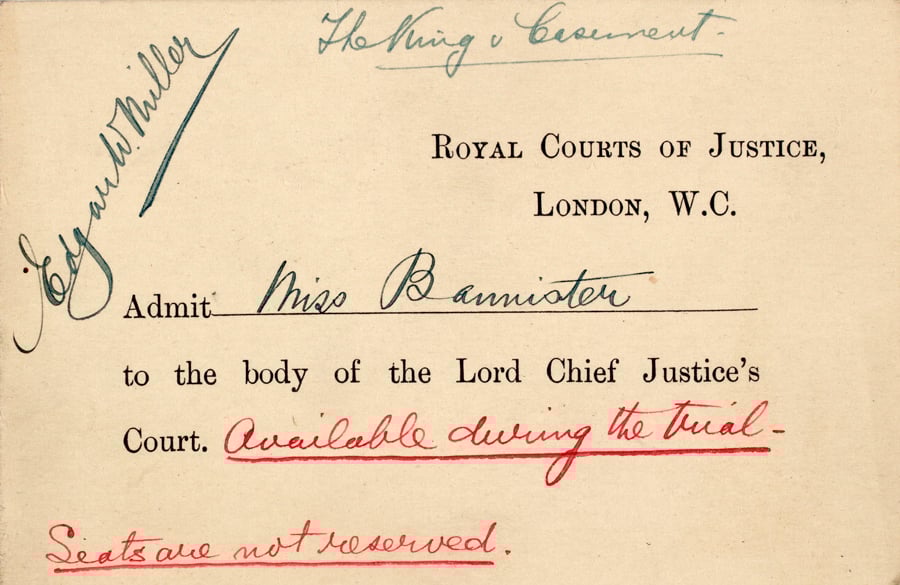 The King v Casement.
Edgar W. Miller
ROYAL COURTS OF JUSTICE,
LONDON, W.C.
Admit Miss Bannister
to the body of the Lord Chief Justice's
Court. Available during the trial-
Seats are not reserved.